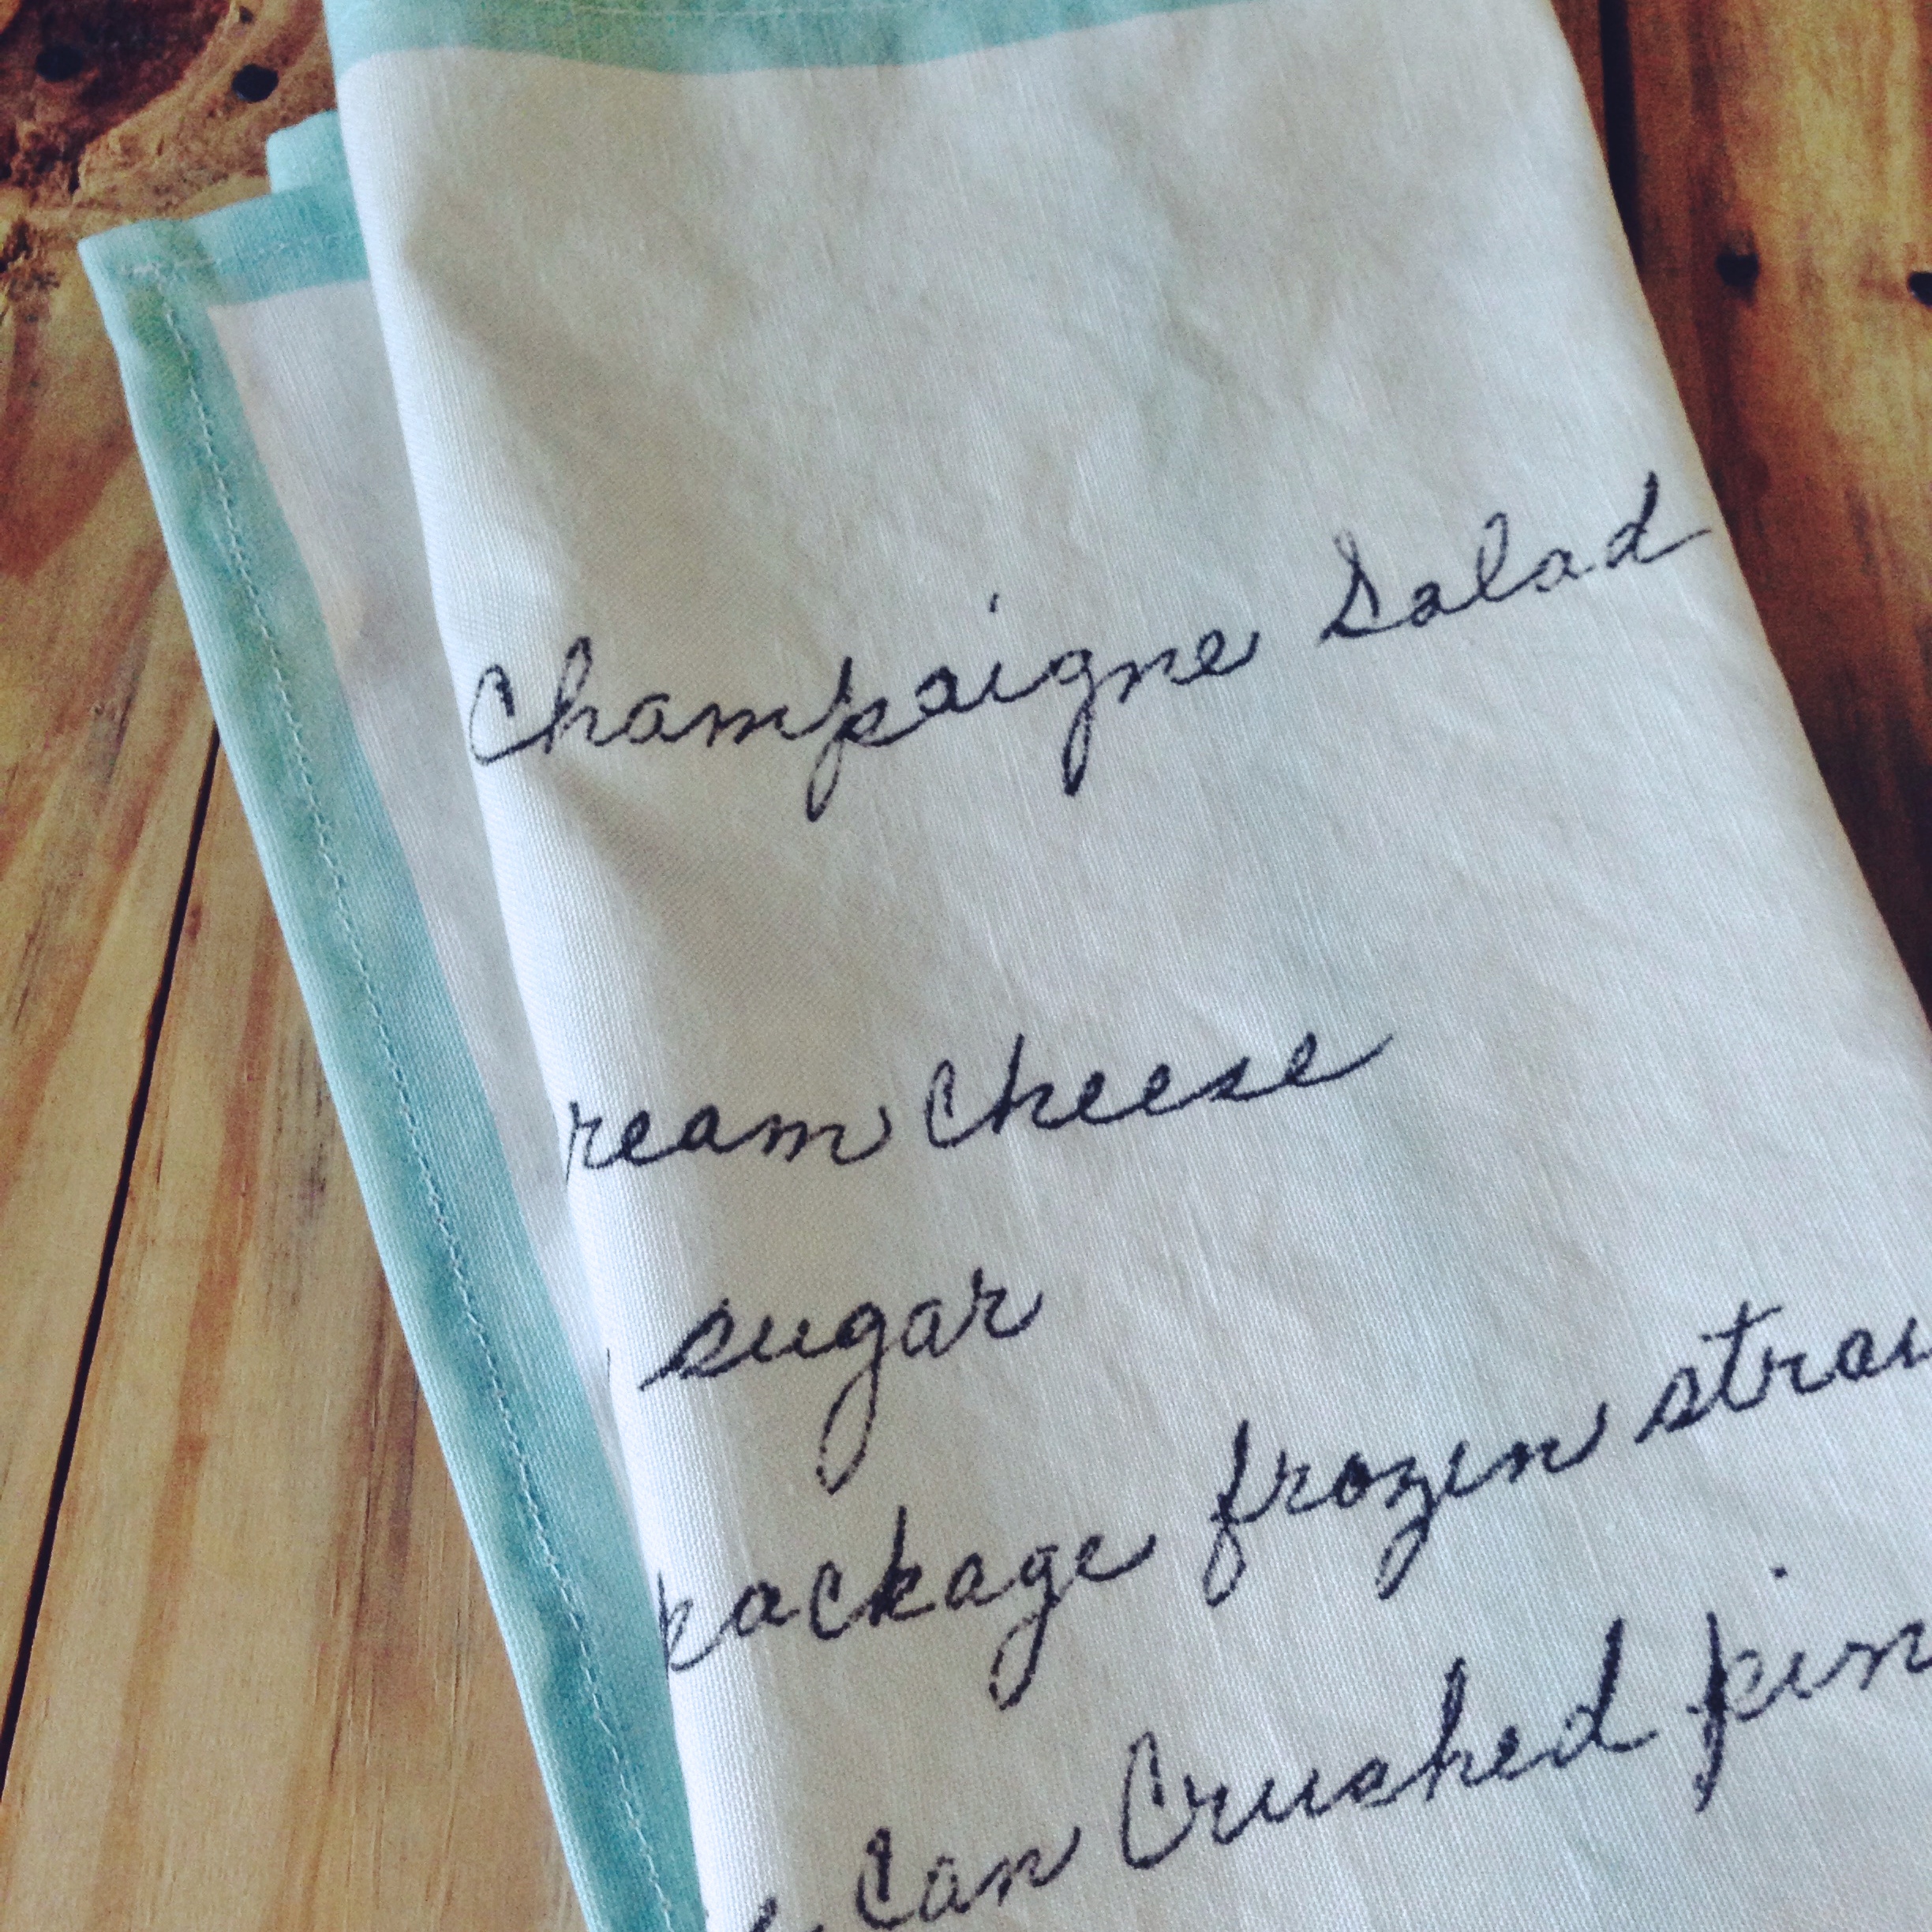 Champaigne Salad
ream Cheese
sugar
package frozen straw
Can Crushed pin